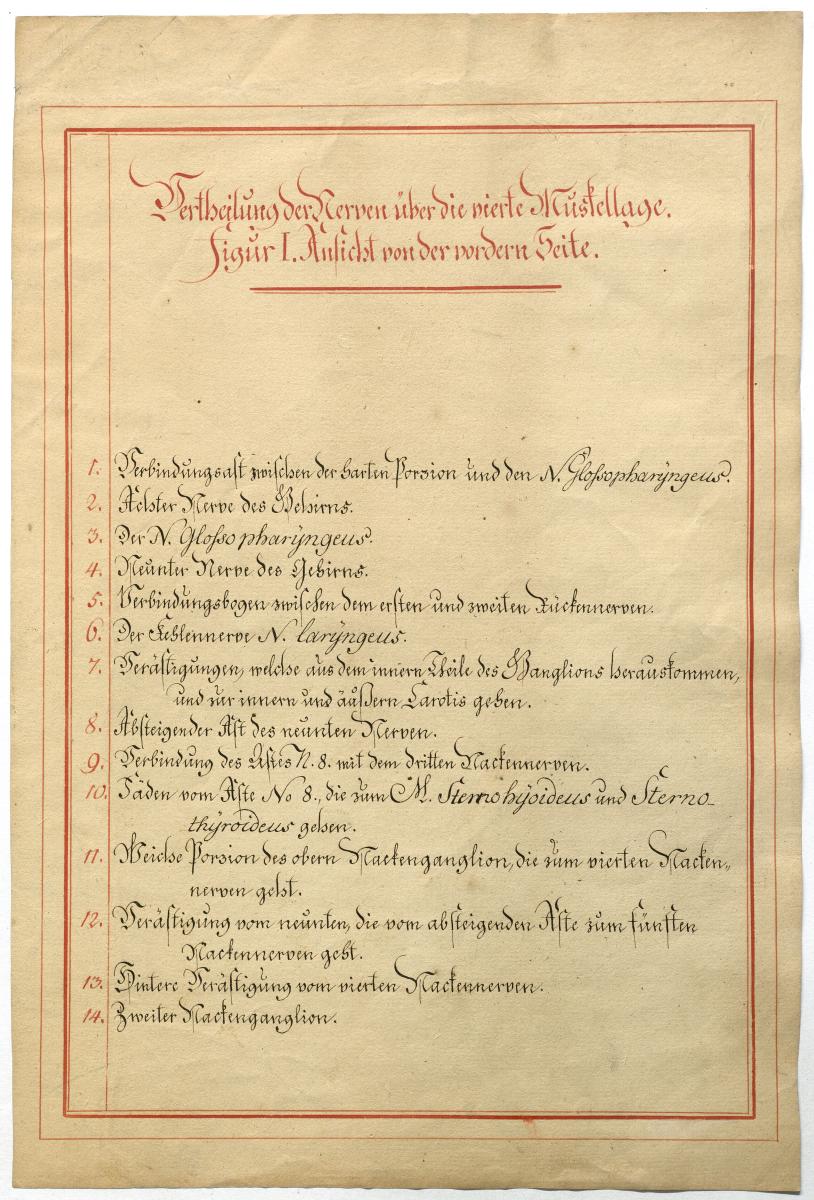 Vertheilung der Nerven über die vierte Muskellage.
Figur I. Ansicht von der vordern Seite.
1. Verbindungsast zwischen der harten Porzion und den N. Glossopharÿngeus.
2. Achter Nerve des Gehirns.
3. Der N. Glossopharÿngeus.
4. Neunter Nerve des Gehirns.
5. Verbindungsbogen zwischen dem ersten und zweiten Rückennerven.
6. Der Kehlennerve N. larÿngeus.
7. Verästigungen, welche aus dem innern Theile des Ganglions herauskommen,
und zur innern und äußern Carotis gehen.
8. Absteigender Ast des neunten Nerven.
9. Verbindung des Astes N. 8. mit dem dritten Nackennerven.
10. Fäden vom Aste No 8., die zum M. Sternohÿoideus und Sterno-
thÿroideus gehen.
11. Weiche Porzion des obern Nackenganglion, die zum vierten Nacken-
nerven geht.
12. Verästigung vom neunten, die vom absteigenden Aste zum fünften
Nackennerven geht.
13. Hintere Verästigung vom vierten Nackennerven.
14. Zweiter Nackenganglion.